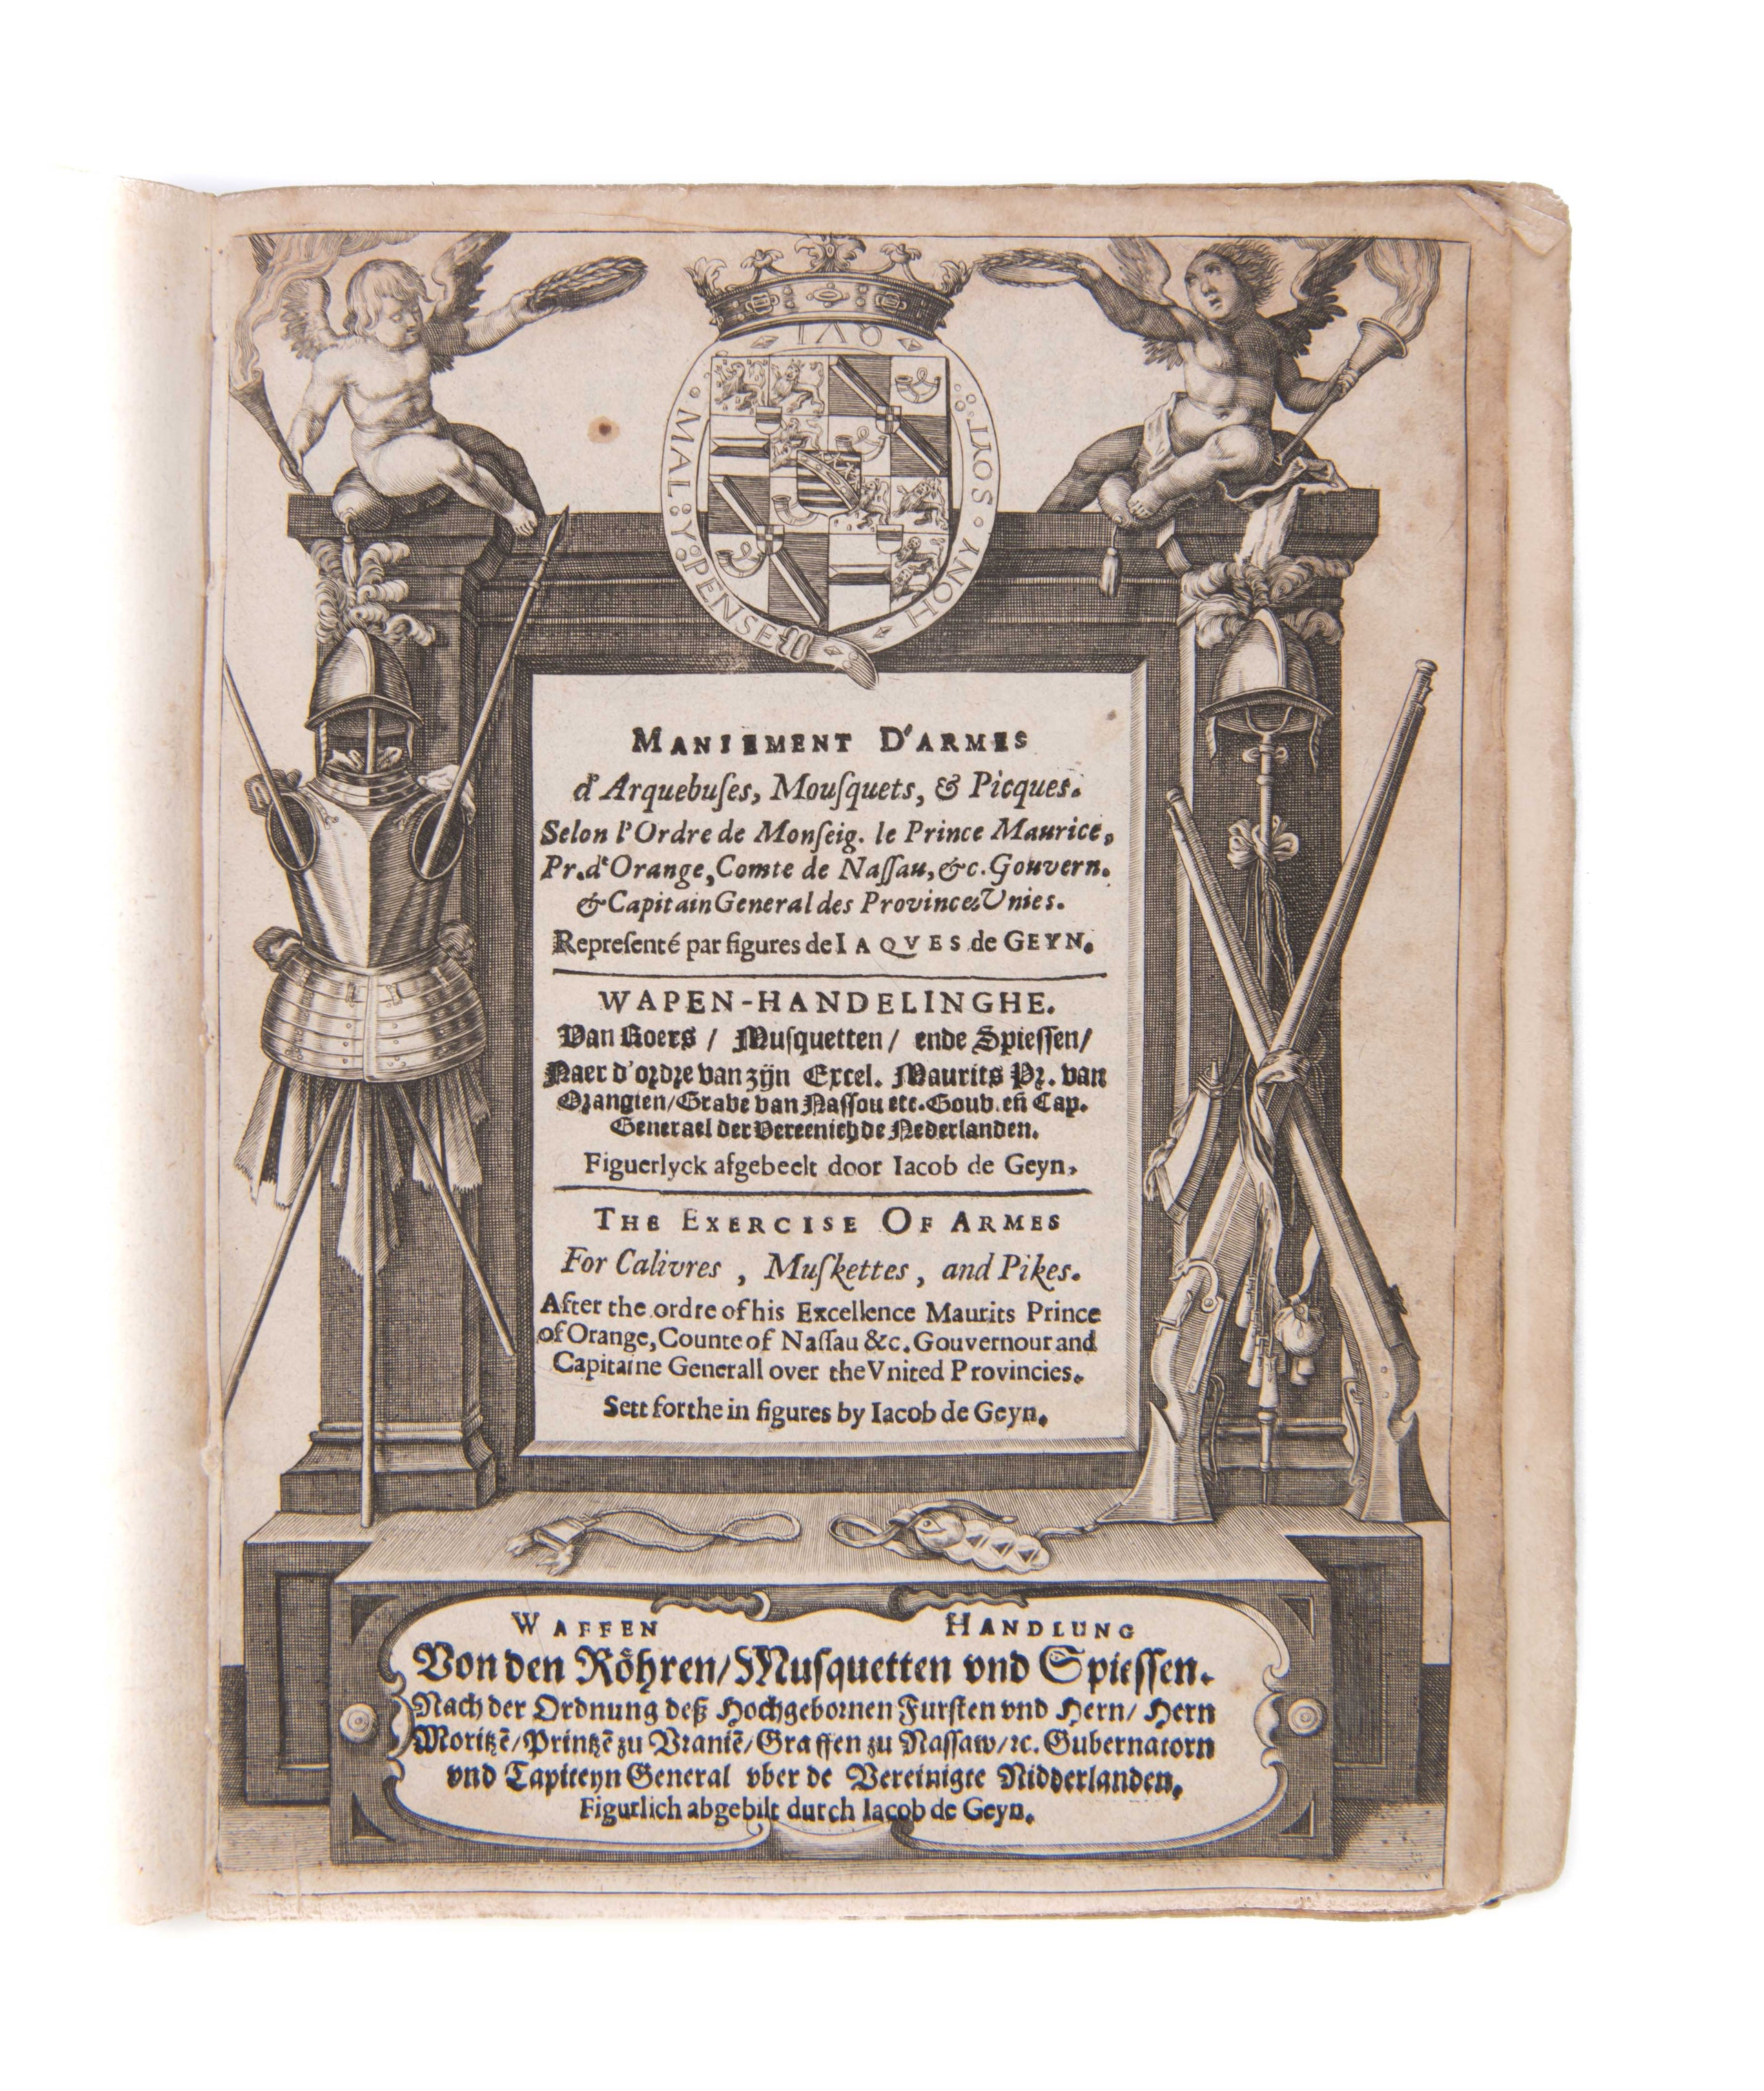 HONY · SOYT · QVI · MAL : Y : PENSE
MANIEMENT D'ARMES
d'Arquebuſes, Mouſquets, & Picques.
Selon l'Ordre de Monſeig. le Prince Maurice,
Pr. d'Orange, Comte de Naſſau, &c. Gouvern.
& Capitain General des Provinces Vnies.
Repreſenté par figures de IAQVES de GEYN.
WAPEN-HANDELINGHE.
Van Roers / Muſquetten / ende Spieſſen/
Naer d'ordre van zijn Excel. Maurits Pr. van
Orangien/Grave van Naſſou etc. Gouv. eñ Cap.
Generael der Vereenichde Nederlanden.
Figuerlyck afgebeelt door Iacob de Geyn,
THE EXERCISE OF ARMES
For Calivres , Muſkettes , and Pikes.
After the ordre of his Excellence Maurits Prince
of Orange, Counte of Naſſau &c. Gouvernour and
Capitaine Generall over the Vnited Provincies.
Sett forthe in figures by Iacob de Geyn.
WAFFEN HANDLUNG
Von den Röhren/Muſquetten vnd Spieſſen.
Nach der Ordnung deß Hochgebornen Furſten vnd Hern/ Hern
Moritzē/Printzē zu Vraniē/Graffen zu Naſſaw/ꝛc. Gubernatorn
vnd Capiteyn General vber de Vereinigte Nidderlanden.
Figurlich abgebilt durch Iacob de Geyn.